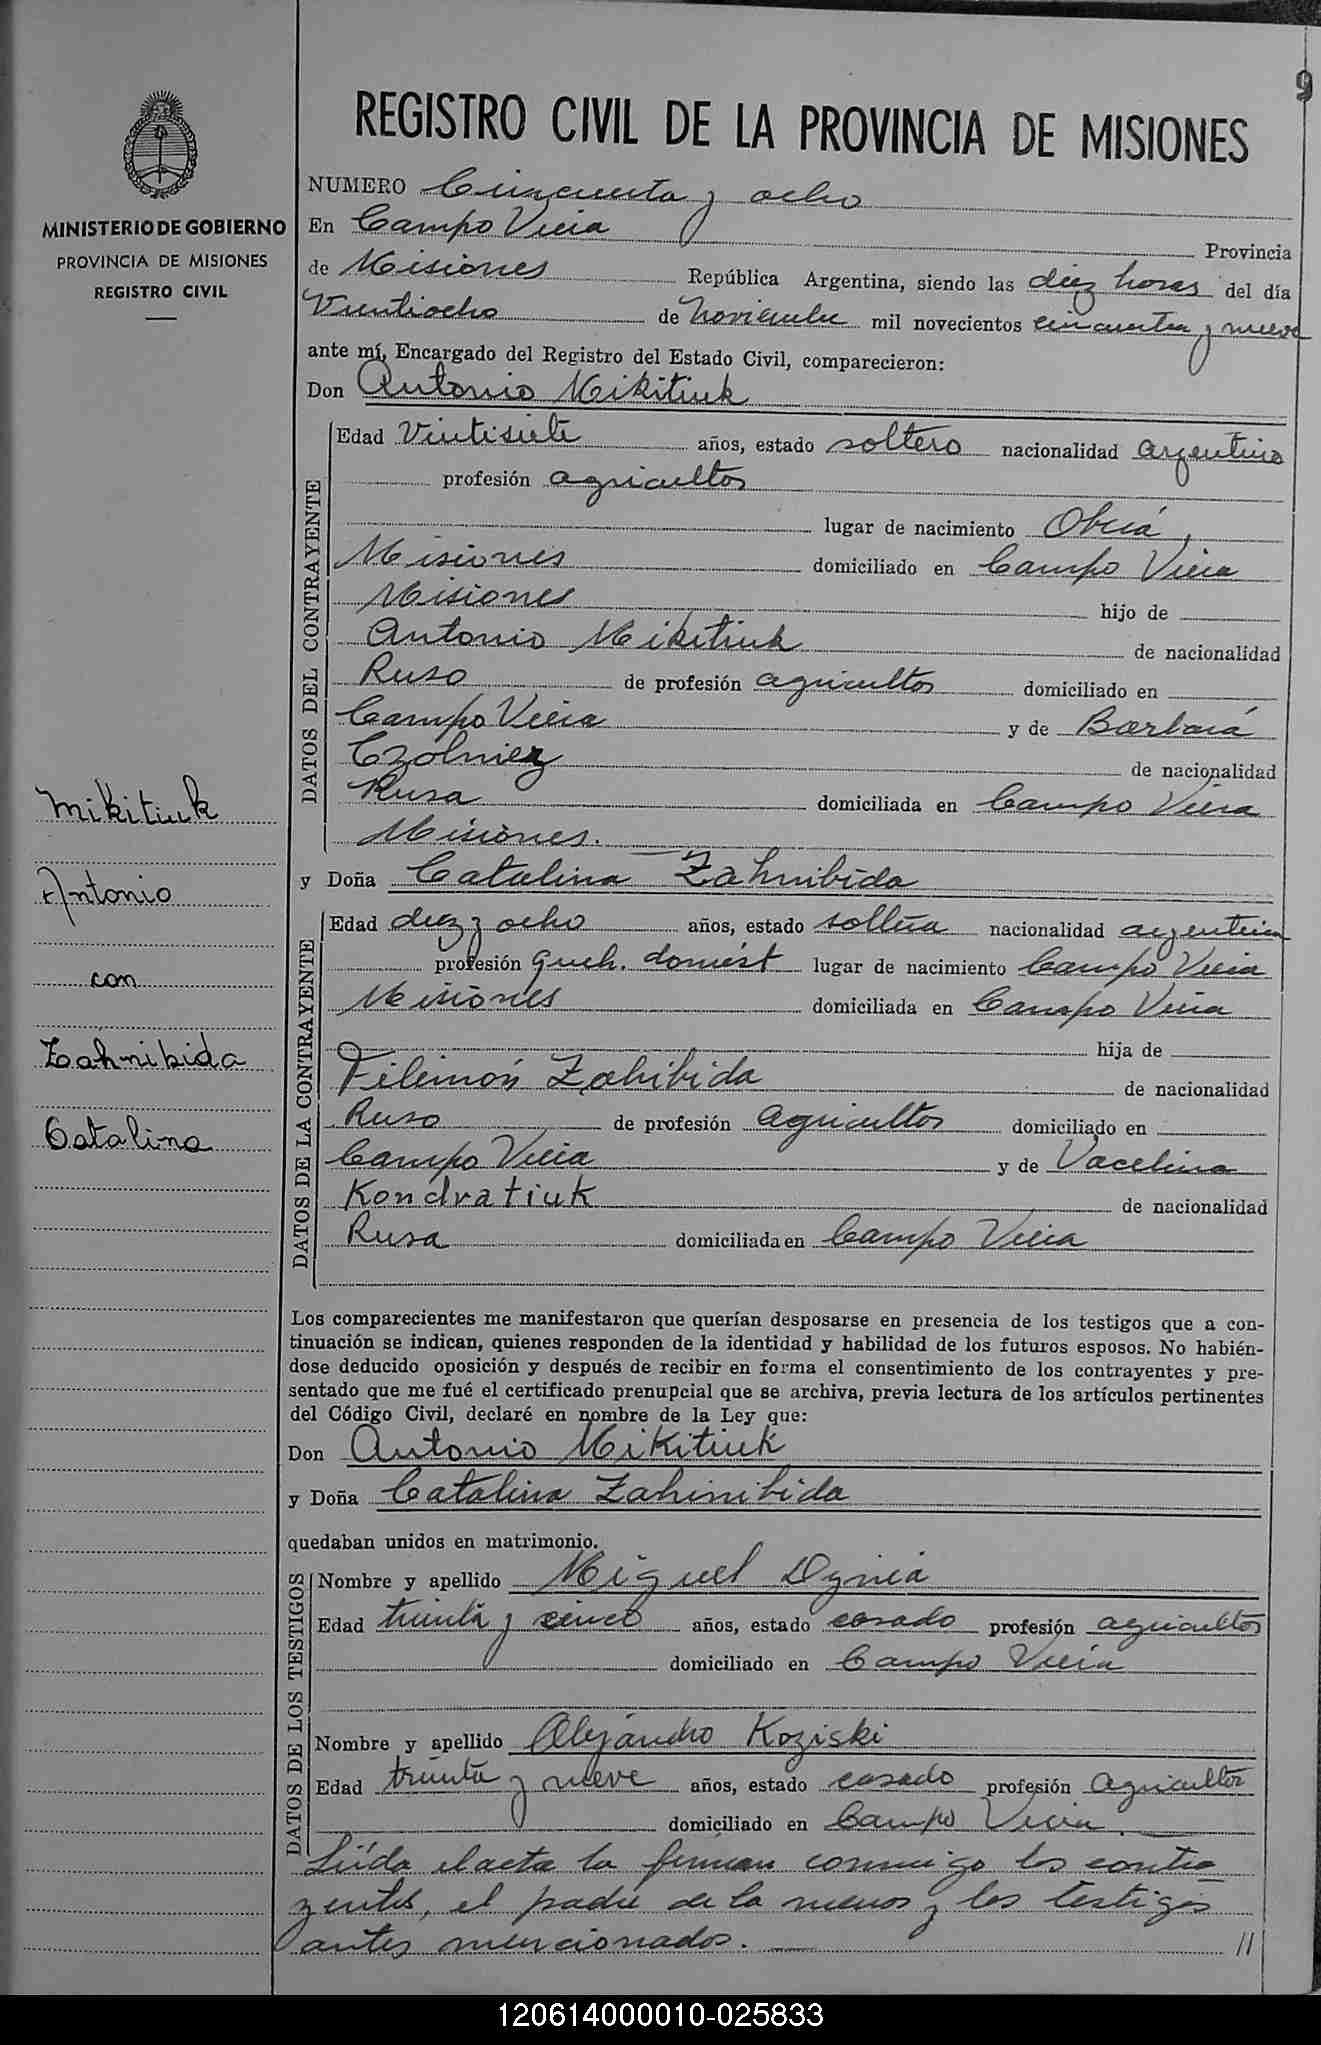 9
REGISTRO CIVIL DE LA PROVINCIA DE MISIONES
MINISTERIO DE GOBIERNO
PROVINCIA DE MISIONES
REGISTRO CIVIL
NUMERO Cincuenta y ocho
En Campo Viera Provincia
de Misiones República Argentina, siendo las diez horas del día
Veintiocho de Noviembre mil novecientos cincuenta y nueve
ante mí, Encargado del Registro del Estado Civil, comparecieron:
Don Antonio Mikitiuk
DATOS DEL CONTRAYENTE
Edad Veintisiete años, estado soltero nacionalidad argentino
profesión agricultor
lugar de nacimiento Oberá,
Misiones domiciliado en Campo Viera
Misiones hijo de
Antonio Mikitiuk de nacionalidad
Ruso de profesión agricultor domiciliado en
Campo Viera y de Barbará
Czolniez de nacionalidad
Rusa domiciliada en Campo Viera
Misiones.
y Doña Catalina Zahnibida
DATOS DE LA CONTRAYENTE
Edad diez y ocho años, estado soltera nacionalidad argentina
profesión queh. domést lugar de nacimiento Campo Viera
Misiones domiciliada en Campo Viera
hija de
Filimón Zahibida de nacionalidad
Ruso de profesión agricultor domiciliado en
Campo Viera y de Vacelina
Kondratiuk de nacionalidad
Rusa domiciliada en Campo Viera
Mikitiuk
Antonio
con
Zahnibida
Catalina
Los comparecientes me manifestaron que querían desposarse en presencia de los testigos que a con-
tinuación se indican, quienes responden de la identidad y habilidad de los futuros esposos. No habién-
dose deducido oposición y después de recibir en forma el consentimiento de los contrayentes y pre-
sentado que me fué el certificado prenupcial que se archiva, previa lectura de los artículos pertinentes
del Código Civil, declaré en nombre de la Ley que:
Don Antonio Mikitiuk
y Doña Catalina Zahinibida
quedaban unidos en matrimonio.
DATOS DE LOS TESTIGOS
Nombre y apellido Miguel Dynia
Edad treinta y cinco años, estado casado profesión agricultor
domiciliado en Campo Viera
Nombre y apellido Alejandro Koziski
Edad treinta y nueve años, estado casado profesión agricultor
domiciliado en Campo Viera.
Leída el acta la firman conmigo los contra
yentes, el padre de la menor y los testigos
antes mencionados. //
120614000010-025833